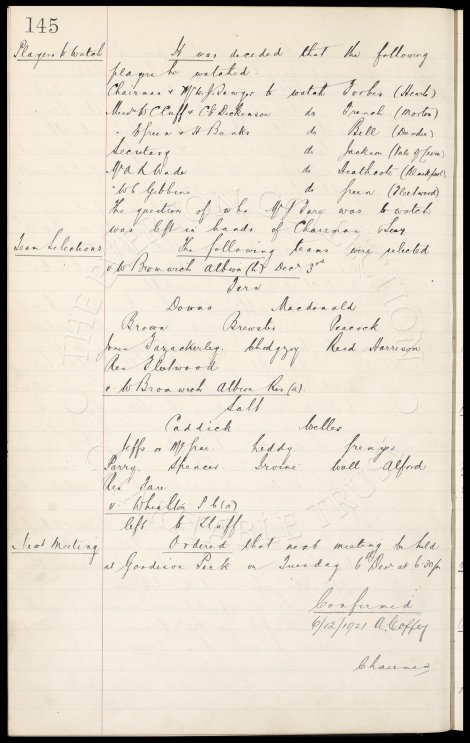 145
Players to Watch It was decided that the following
players be watched.
Chairman & Mr W.J. Sawyer to watch Forbes (Hearts)
Messrs W C Cuff & C S Dickinson do French (Morton)
" E Green & H Banks do Bell (Dundee)
Secretary do Jackson (Vale of Leven)
Mr A R Wade do Heathcote (Blackpool)
" W C Gibbins do Green (Fleetwood)
The question of who Mr J Fare was to watch
was left in hands of Chairman & Secy
Team Selections The following teams were selected
v W Bromwich Albion (h) Decr 3rd
Fern
Downs Macdonald
Brown Brewster Peacock
Jones Fazackerley Chedgzoy Reid Harrison
Res Fleetwood
v W Bromwich Albion Res (a)
Salt
Caddick Welles
Jeffs or Mc Grae Leddy Grenyer
Parry Spencer Irvine Wall Alford
Res Fare
v Wheatsheaf (a)
left to Staff
Next Meeting Ordered that next meeting be held
at Goodison Park on Tuesday 6th Decr at 6.30 pm
Confirmed
6/12/1921 A. Coffey
Chairman
THE EVERTON COLLECTION
CHARITABLE TRUST